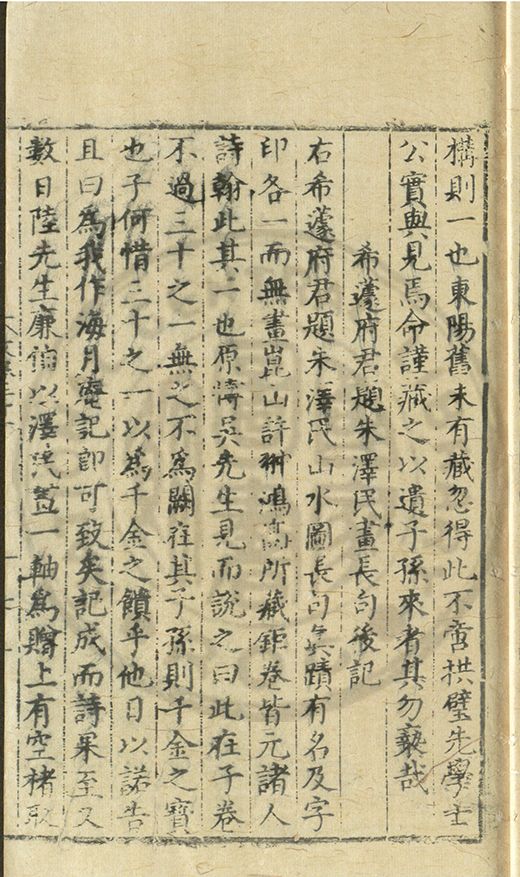 構則一也東陽舊未有藏忽得此不啻拱璧先學士
公實與見焉命謹藏之以遺子孫來者其勿褻哉
希蘧府君題朱澤民畫長句後記
右希蘧府君題朱澤民山水圖長句真蹟有名及字
印各一而無畫崑山許翀鴻高所藏鉅卷皆元諸人
詩翰此其一也原博吳先生見而說之曰此在子卷
不過三十之一無之不為闕在其子孫則千金之寶
也子何惜三十之一以為千金之饋乎他日以諾告
且曰為我作海月菴記即可致矣記成而詩果至又
數日陸先生廉伯以澤民畫一軸為贈上有空楮